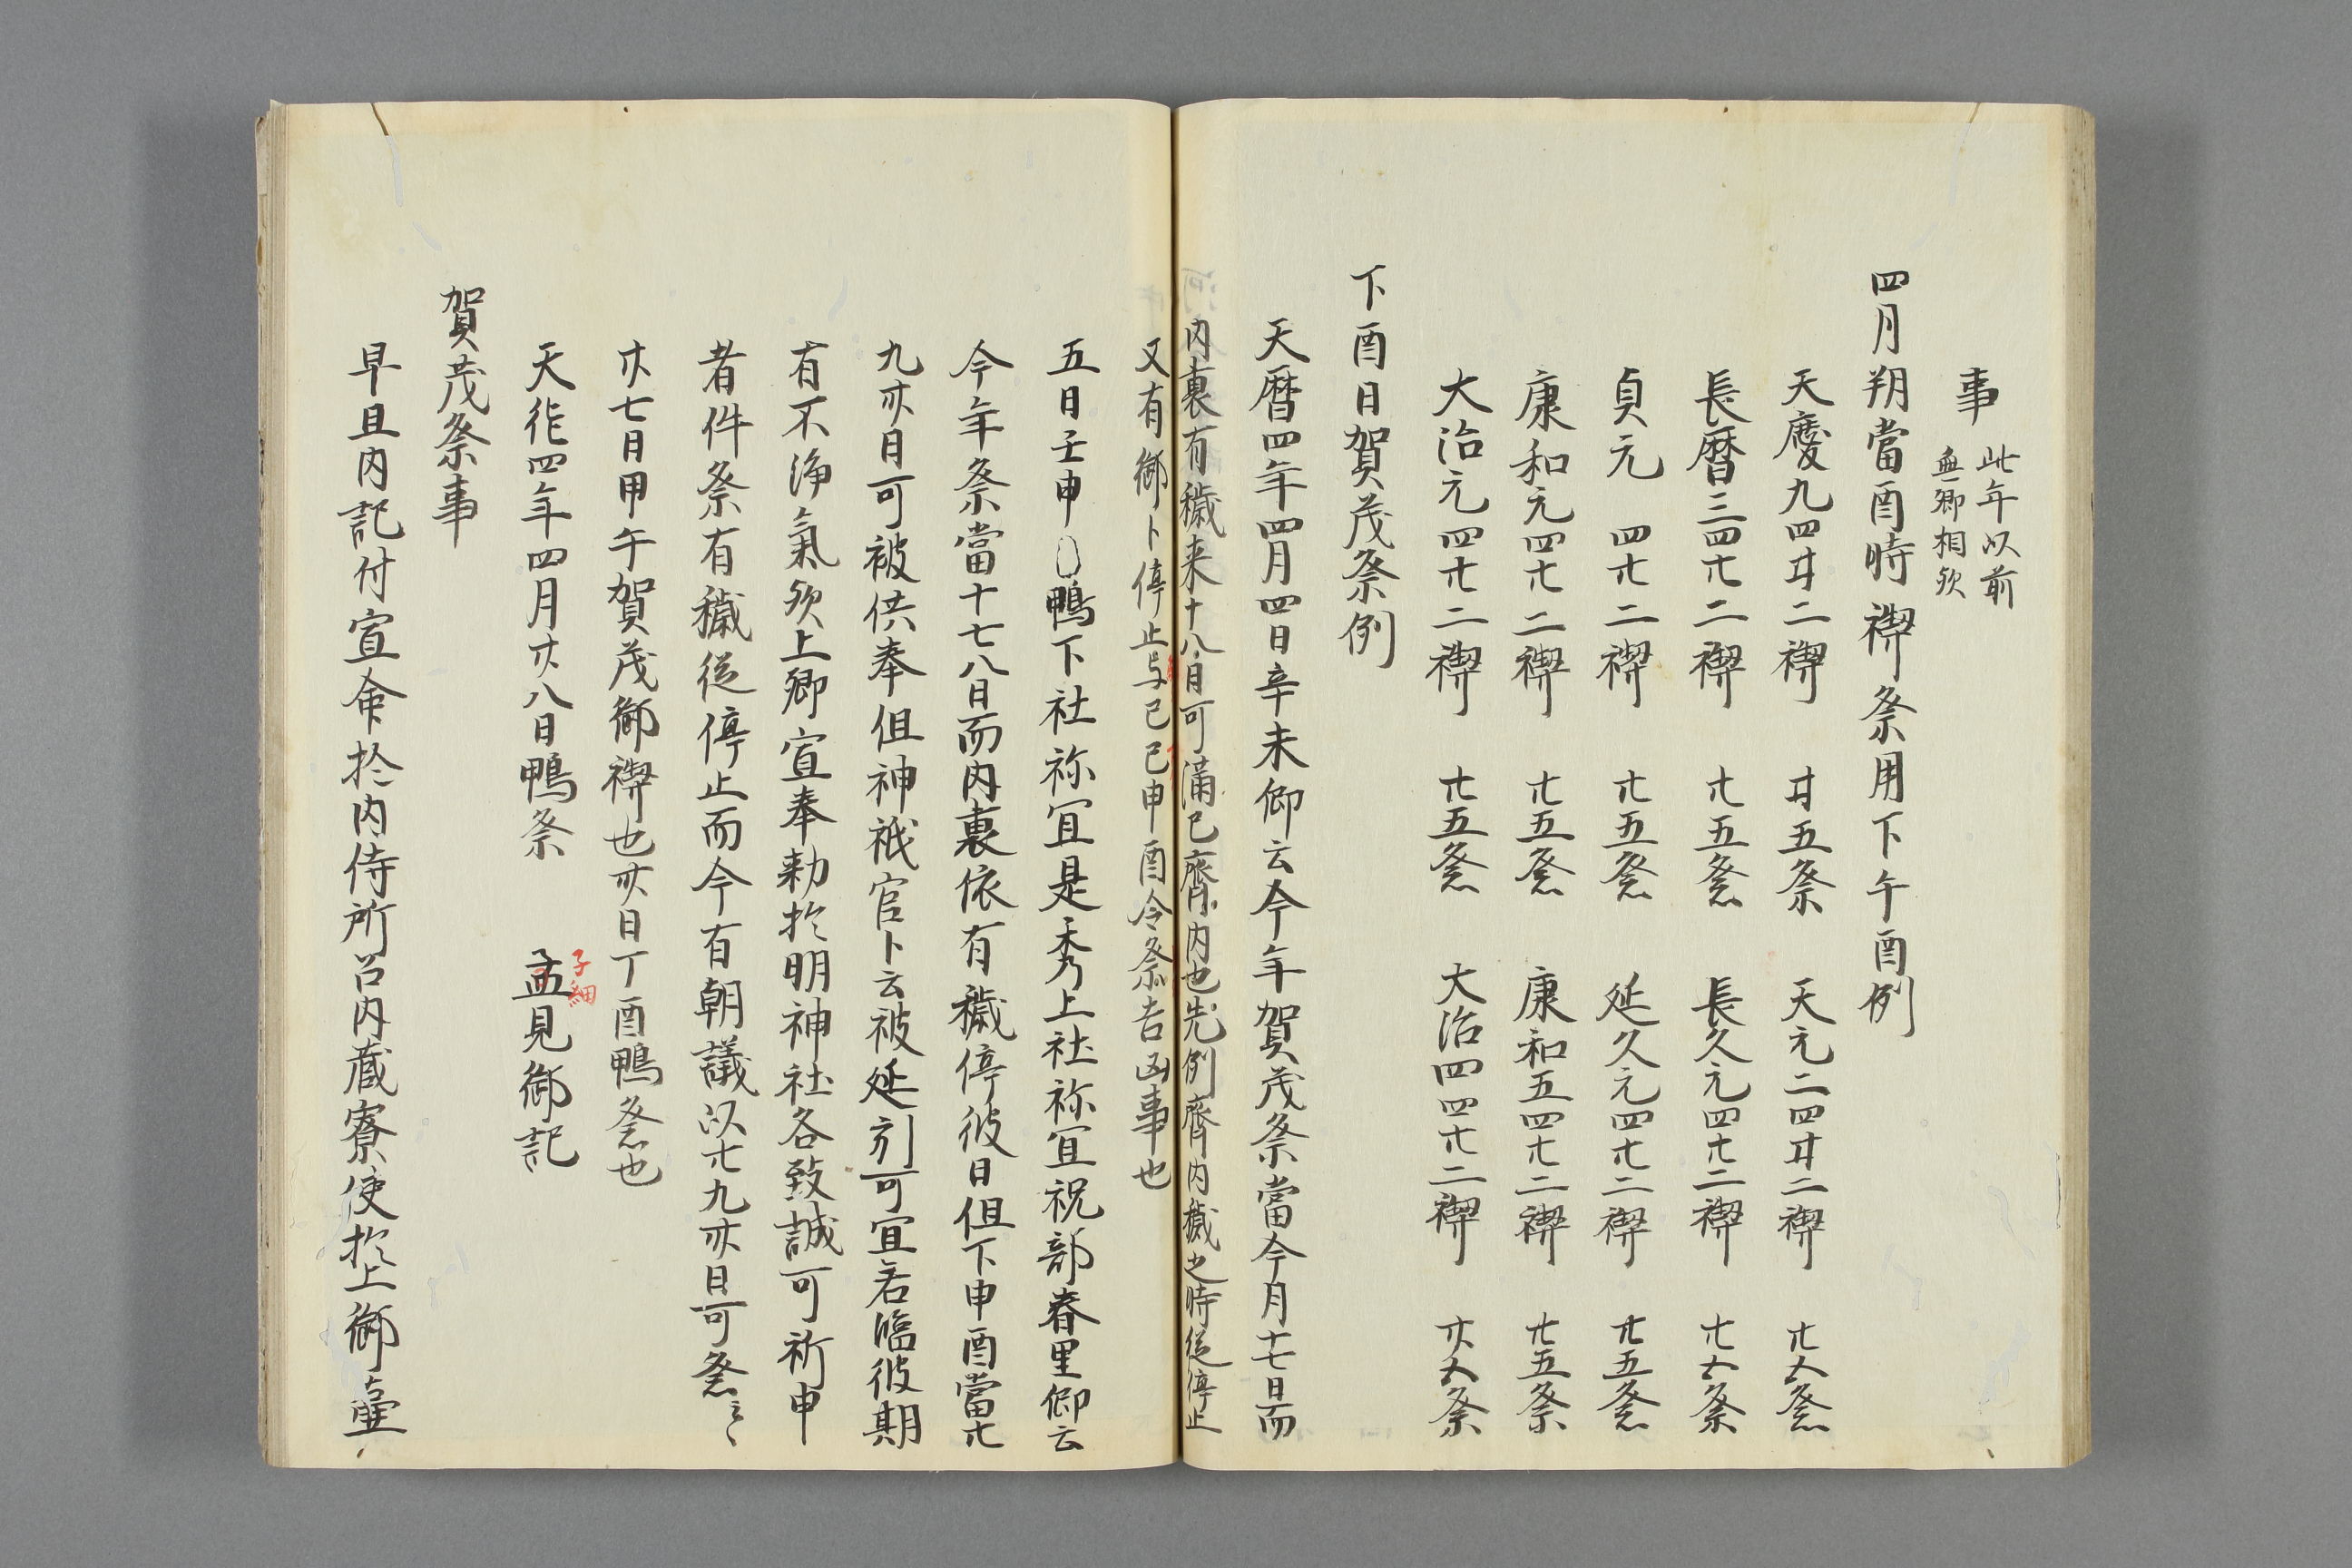 事 此年以前
無卿相欤
四月朔當酉時禊祭用下午酉例
天慶九四廿二禊 廿五祭 天元二四廿二禊 廿五祭
長暦三四廿二禊 廿五祭 長久元四廿二禊 廿五祭
貞元 四廿二禊 廿五祭 延久元四廿二禊 廿五祭
康和元四廿二禊 廿五祭 康和五四廿二禊 廿五祭
大治元四廿二禊 廿五祭 大治四四廿二禊 廿五祭
下酉日賀茂祭例
天暦四年四月四日辛未仰云今年賀茂祭當今月十七日而
内裏有穢来十八日可満已齋内也先例齋内穢之時従停止
又有御卜停止与已已申酉令祭吉凶事也
五日壬申鴨下社祢冝是秀上社祢冝祝部春里仰云
今年祭當十七八日而内裏依有穢停彼日但下申酉當廿
九卅日可被供奉但神祇官卜云被延引可宜若臨彼期
有不浄氣欤上卿宣奉勅於明神社各致誠可祈申
者件祭有穢従停止而今有朝議以廿九卅日可祭云々
廿七日甲午賀茂御禊也卅日丁酉鴨祭也
天徳四年四月廿八日鴨祭 子細 孟見御記
賀茂祭事
早旦内記付宣命於内侍所召内蔵寮使於上御壷